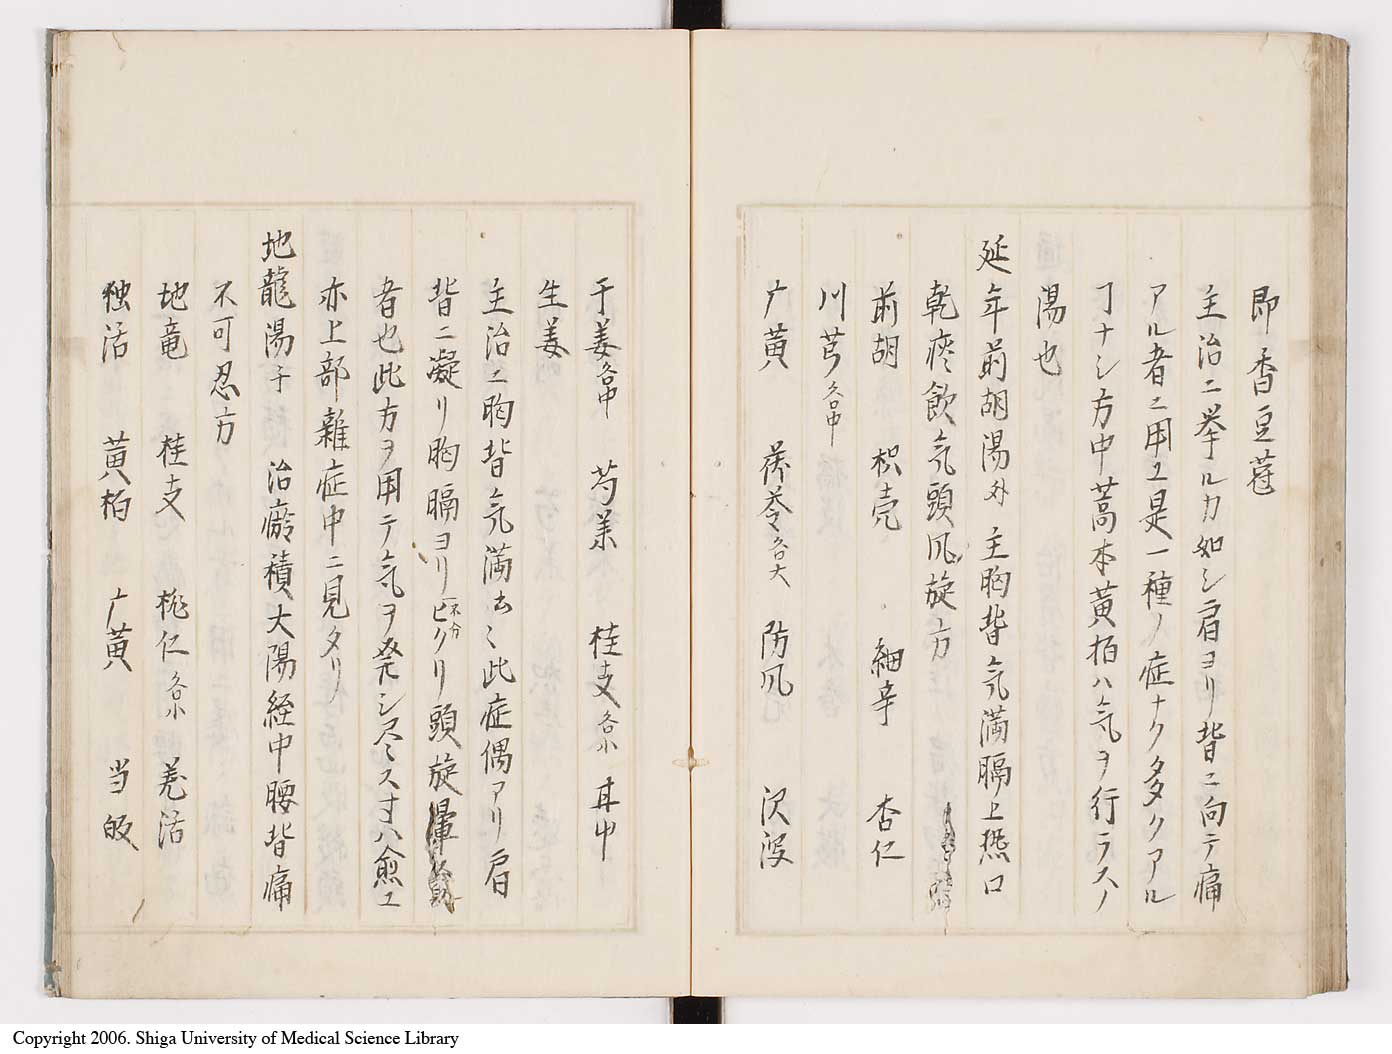 即香豆蒄
主治ニ挙ルカ如シ肩ヨリ背ニ向テ痛
アル者ニ用ユ是一種ノ症ナク多クアル
ヿナシ方中藁本黄栢ハ気ヲ行ラスノ
湯也
延年前胡湯外 主胸背気満膈上熱口
乾痰飲気頭风旋方
前胡 枳壳 細辛 杏仁
川芎各中
广黄 茯苓各大 防风 沢泻
干姜各中 芍薬 桂支各小 甘中
生姜
主治ニ胸背気満云〻此症偶アリ肩
背ニ凝リ胸膈ヨリヒクリ不分頭旋
者也此方ヲ用テ気ヲ発シ尽ス寸ハ愈ユ
亦上部雑症中ニ見タリ
地龍湯子 治瘀積大陽経中腰背痛
不可忍方
地竜 桂支 桃仁各小 羌活
独活 黄栢 广黄 当皈
Copyright 2006. Shiga University of Medical Science Library